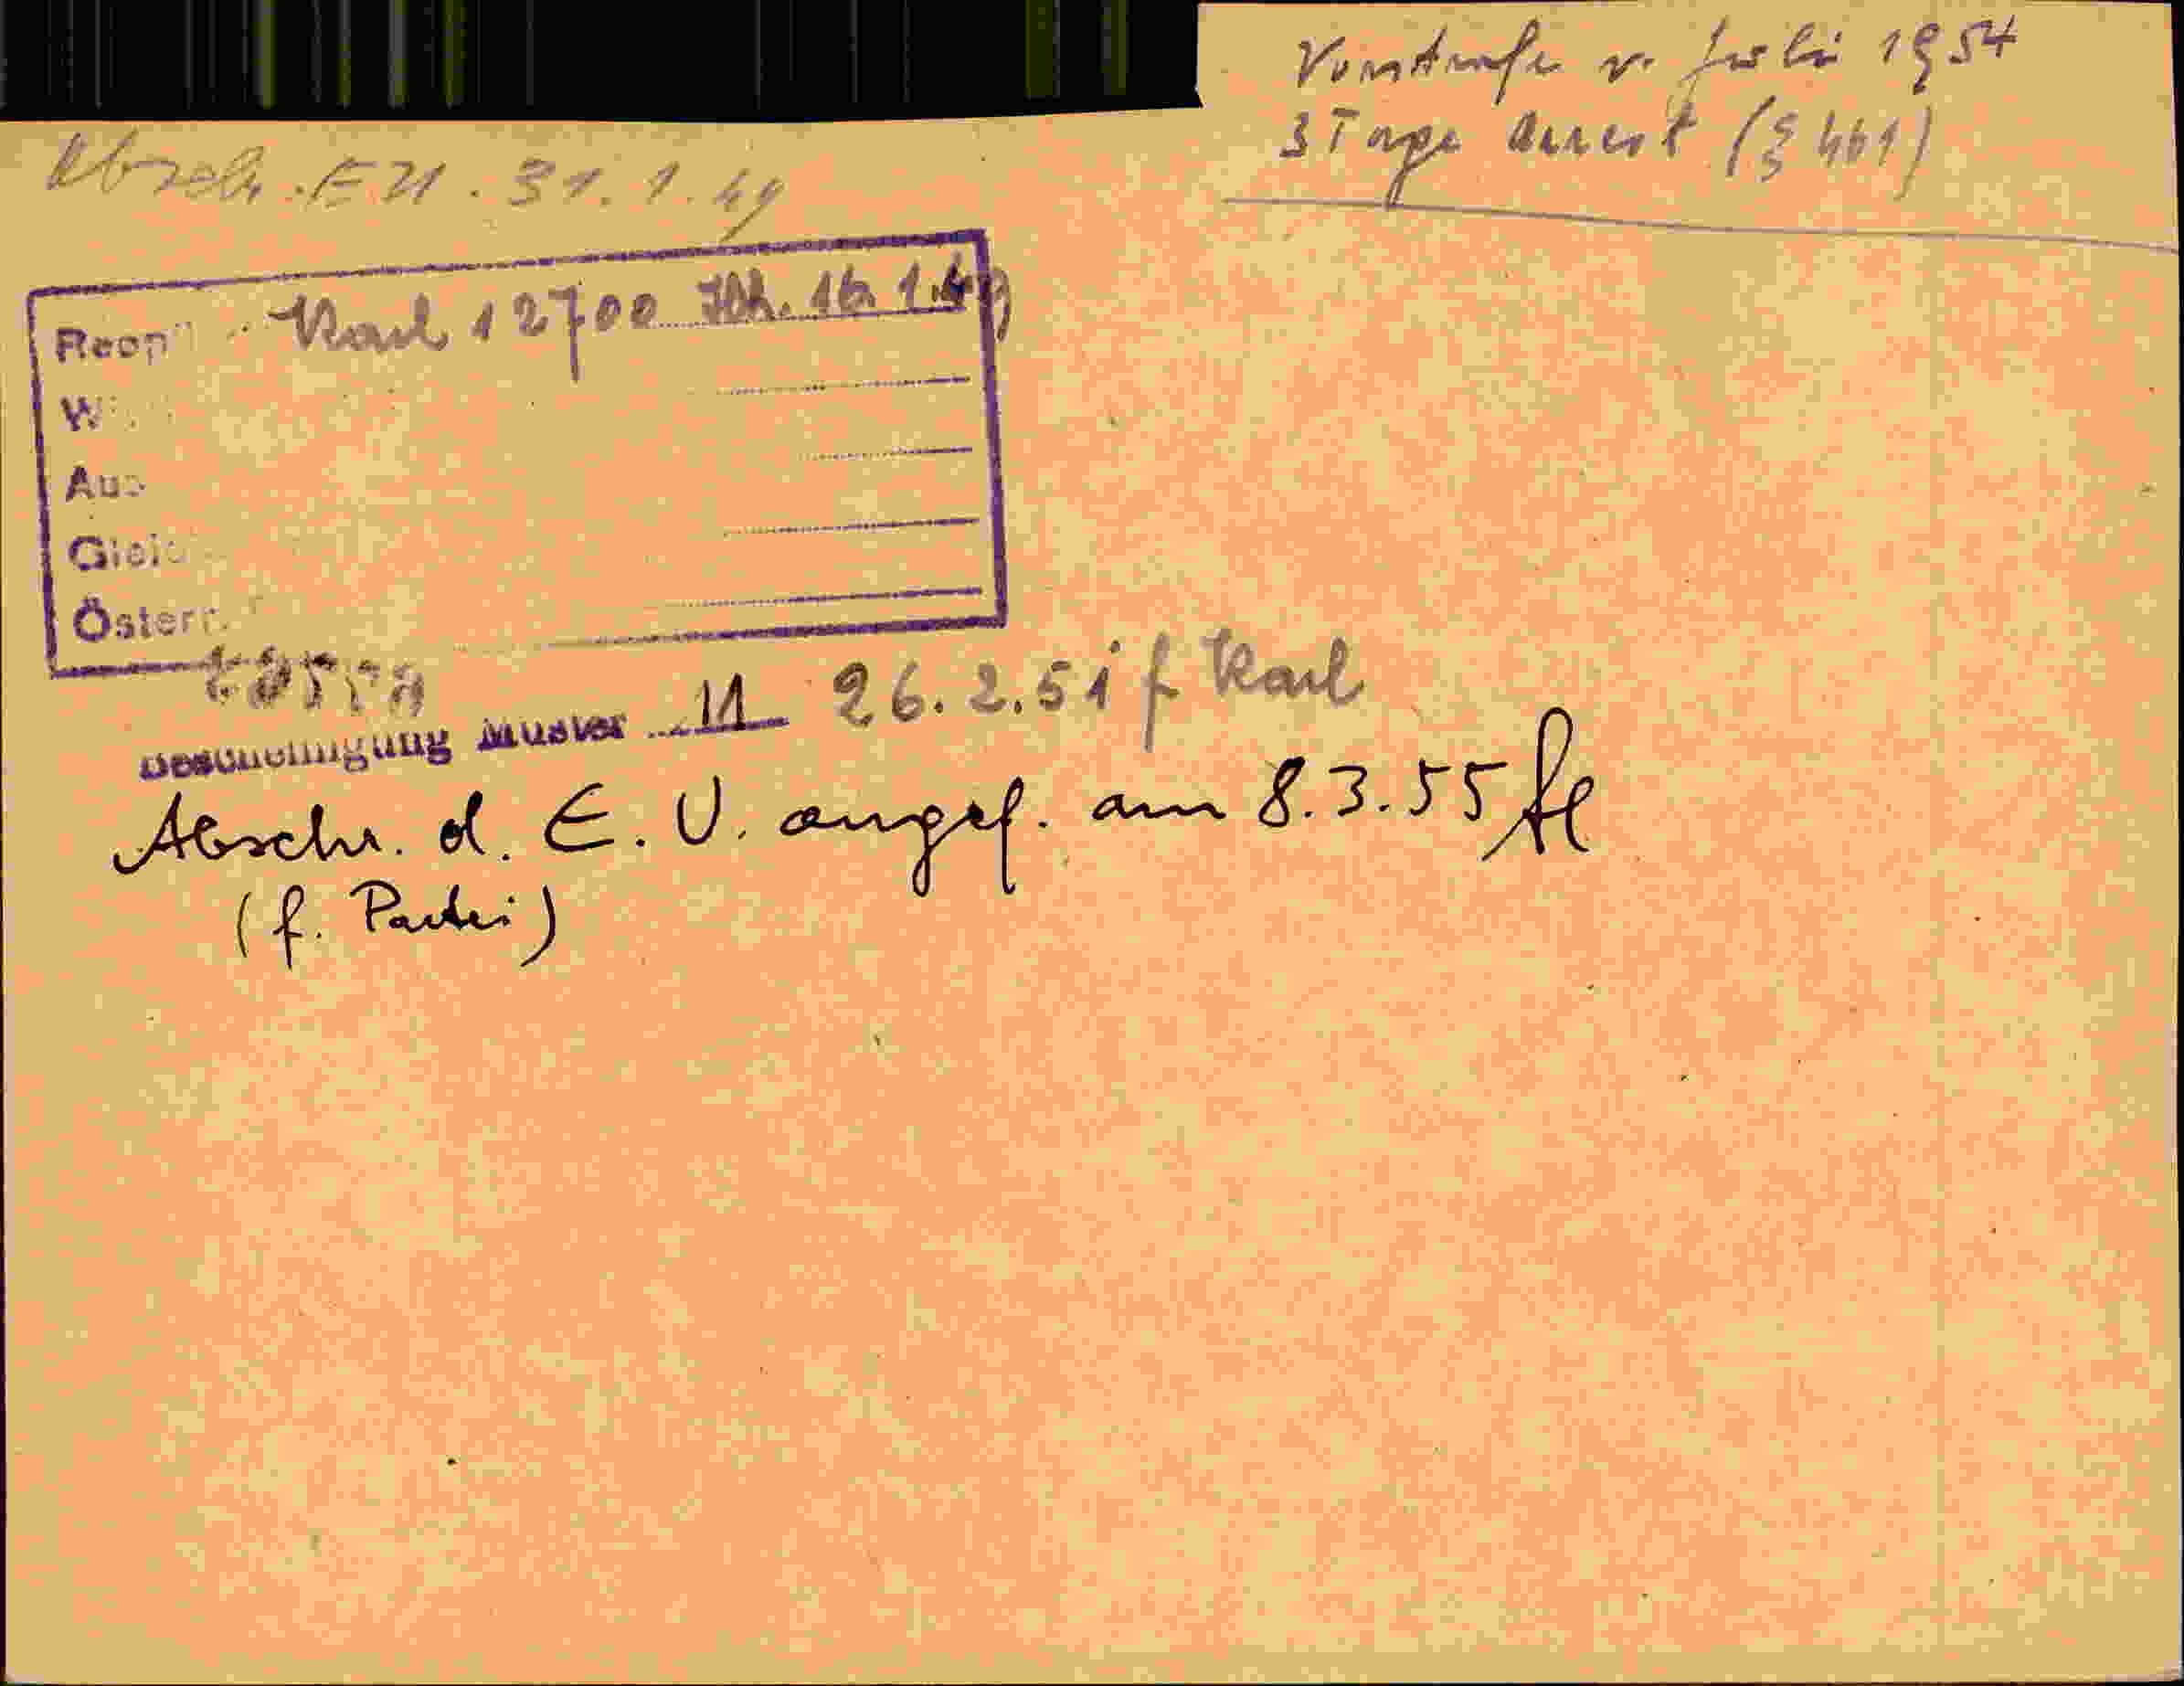 Vorstrafe v. Juli 1954
3 Tage Arrest (§ 461)
Abschr. E 21. 31. 1. 49
Karl 12700 16. 1. 49
Österr.
Bescheinigung Muster 11 26. 2. 51 f Karl
Abschr. d. E. V. angef. am 8.3.55
(f. Partei)